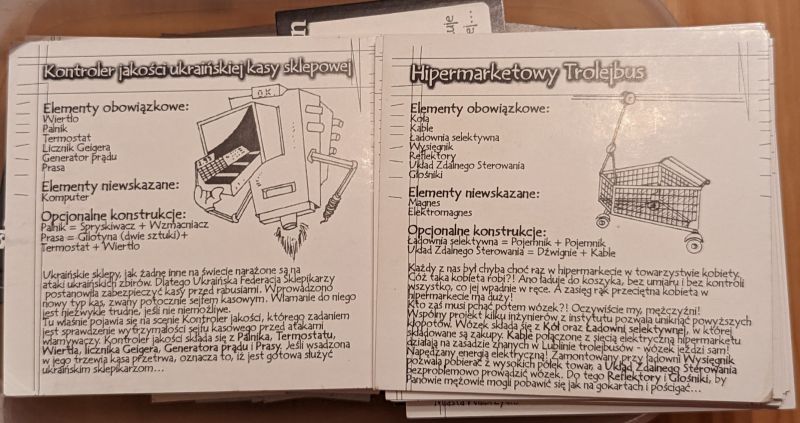 Kontroler jakości ukraińskiej kasy sklepowej
O.K.
Elementy obowiązkowe:
Wiertło
Palnik
Termostat
Licznik Geigera
Generator prądu
Prasa
Elementy niewskazane:
Komputer
Opcjonalne konstrukcje:
Palnik = Spryskiwacz + Wzmacniacz
Prasa = Gilotyna (dwie sztuki)+
Termostat + Wiertło
Ukraińskie sklepy, jak żadne inne na świecie narażone są na
ataki ukraińskich zbirów. Dlatego Ukraińska Federacja Sklepikarzy
postanowiła zabezpieczyć kasy przed rabusiami. Wprowadzono
nowy typ kas, zwany potocznie sejfem kasowym. Włamanie do niego
jest niezwykle trudne, jeśli nie niemożliwe.
Tu właśnie pojawia się na scenie Kontroler jakości, którego zadaniem
jest sprawdzenie wytrzymałości sejfu kasowego przed atakami
włamywaczy. Kontroler jakości składa się z Palnika, Termostatu,
Wiertła, licznika Geigera, Generatora prądu i Prasy. Jeśli wsadzona
w jego trzewia kasa przetrwa, oznacza to, iż jest gotowa służyć
ukraińskim sklepikarzom...
Hipermarketowy Trolejbus
Elementy obowiązkowe:
Koła
Kable
Ładownia selektywna
Wysięgnik
Reflektory
Układ Zdalnego Sterowania
Głośniki
Elementy niewskazane:
Magnes
Elektromagnes
Opcjonalne konstrukcje:
Ładownia selektywna = Pojemnik + Pojemnik
Układ Zdalnego Sterowania = Dźwignie + Kable
Każdy z nas był chyba choć raz w hipermarkecie w towarzystwie kobiety.
Cóż taka kobieta robi?! Ano ładuje do koszyka, bez umiaru i bez kontroli
wszystko, co jej wpadnie w ręce. A zasięg rąk przeciętna kobieta w
hipermarkecie ma duży!
Kto zaś musi pchać potem wózek?! Oczywiście my, mężczyźni!
Wspólny projekt kilku inżynierów z instytutu pozwala uniknąć powyższych
kłopotów. Wózek składa się z Kół oraz Ładowni selektywnej, w której
składowane są zakupy. Kable połączone z siecią elektryczną hipermarketu
działają na zasadzie znanych w Lublinie trolejbusów - wózek jeździ sam!
Napędzany energią elektryczną! Zamontowany przy ładowni Wysięgnik
pozwala pobierać z wysokich półek towar, a Układ Zdalnego Sterowania
bezproblemowo prowadzić wózek. Do tego Reflektory i Głośniki, by
Panowie mężowie mogli pobawić się jak na gokartach i pościgać...